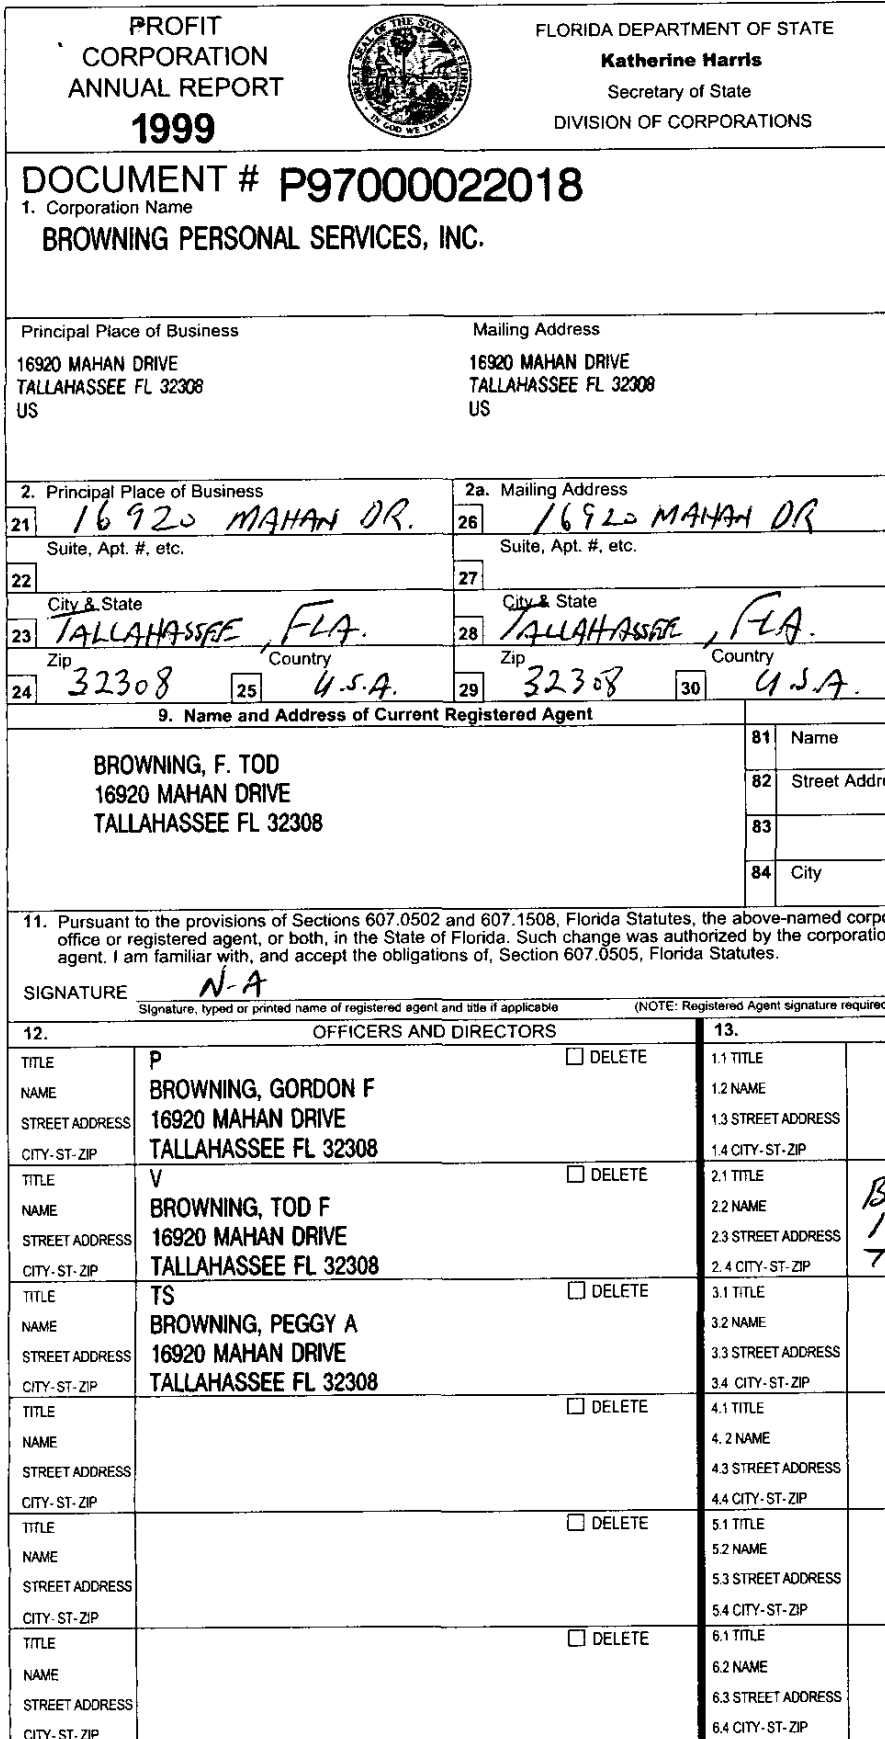 PROFIT
CORPORATION
ANNUAL REPORT
1999
GREAT SEAL OF THE STATE OF FLORIDA
IN GOD WE TRUST
FLORIDA DEPARTMENT OF STATE
Katherine Harris
Secretary of State
DIVISION OF CORPORATIONS
DOCUMENT # P97000022018
1. Corporation Name
BROWNING PERSONAL SERVICES, INC.
Principal Place of Business
16920 MAHAN DRIVE
TALLAHASSEE FL 32308
US
Mailing Address
16920 MAHAN DRIVE
TALLAHASSEE FL 32308
US
2. Principal Place of Business
21 16920 MAHAN DR.
Suite, Apt. #, etc.
22
City & State
23 TALLAHASSEE, FLA.
Zip Country
24 32308 25 U.S.A.
2a. Mailing Address
26 16920 MAHAN DR
Suite, Apt. #, etc.
27
City & State
28 TALLAHASSEE, FLA.
Zip Country
29 32308 30 U.S.A.
9. Name and Address of Current Registered Agent
BROWNING, F. TOD
16920 MAHAN DRIVE
TALLAHASSEE FL 32308
81 Name
82 Street Addre
83
84 City
11. Pursuant to the provisions of Sections 607.0502 and 607.1508, Florida Statutes, the above-named corpo
office or registered agent, or both, in the State of Florida. Such change was authorized by the corporatio
agent. I am familiar with, and accept the obligations of, Section 607.0505, Florida Statutes.
SIGNATURE N-A
Signature, typed or printed name of registered agent and title if applicable (NOTE: Registered Agent signature required
12. OFFICERS AND DIRECTORS
TITLE P DELETE
NAME BROWNING, GORDON F
STREET ADDRESS 16920 MAHAN DRIVE
CITY-ST-ZIP TALLAHASSEE FL 32308
TITLE V DELETE
NAME BROWNING, TOD F
STREET ADDRESS 16920 MAHAN DRIVE
CITY-ST-ZIP TALLAHASSEE FL 32308
TITLE TS DELETE
NAME BROWNING, PEGGY A
STREET ADDRESS 16920 MAHAN DRIVE
CITY-ST-ZIP TALLAHASSEE FL 32308
TITLE DELETE
NAME
STREET ADDRESS
CITY-ST-ZIP
TITLE DELETE
NAME
STREET ADDRESS
CITY-ST-ZIP
TITLE DELETE
NAME
STREET ADDRESS
CITY-ST-ZIP
13.
1.1 TITLE
1.2 NAME
1.3 STREET ADDRESS
1.4 CITY-ST-ZIP
2.1 TITLE
2.2 NAME B
2.3 STREET ADDRESS 1
2.4 CITY-ST-ZIP T
3.1 TITLE
3.2 NAME
3.3 STREET ADDRESS
3.4 CITY-ST-ZIP
4.1 TITLE
4.2 NAME
4.3 STREET ADDRESS
4.4 CITY-ST-ZIP
5.1 TITLE
5.2 NAME
5.3 STREET ADDRESS
5.4 CITY-ST-ZIP
6.1 TITLE
6.2 NAME
6.3 STREET ADDRESS
6.4 CITY-ST-ZIP